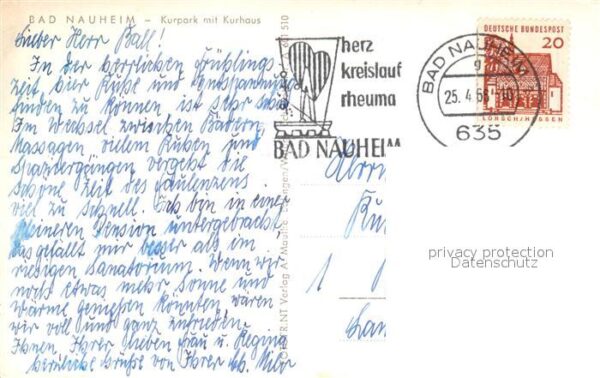 BAD NAUHEIM – Kurpark mit Kurhaus
Lieber Herr Ball!
In der herrlichen Frühlings-
zeit, hier Ruhe und Entspannung
finden zu können ist sehr schön.
Im Wechsel zwischen Bädern,
Massagen vielem Ruhen und
Spaziergängen vergeht die
schöne Zeit des Faulenzens
viel zu schnell. Ich bin in einer
kleineren Pension untergebracht,
das gefällt mir besser als im
riesigen Sanatorium. Wenn wir
noch etwas mehr Sonne und
Wärme genießen könnten wären
wir voll und ganz zufrieden.
Ihnen, Ihrer lieben Frau u. Regina
herzliche Grüße von Ihrer
510
Verlag A.
herz
kreislauf
rheuma
BAD NAUHEIM
BAD NAUHEIM
25.4.68
635
DEUTSCHE BUNDESPOST
20
LORSCH/HESSEN
Herrn
1
privacy protection
Datenschutz